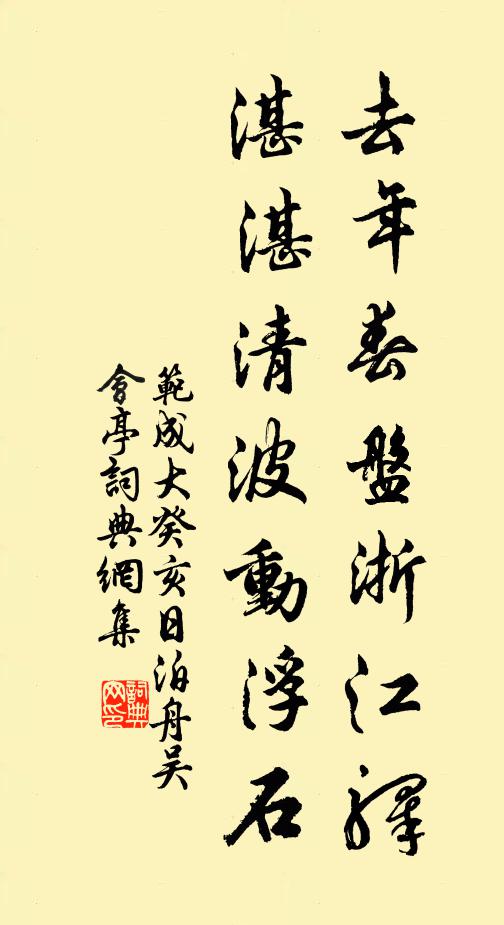 去年春盤浙江驛
湛湛清波動浮石
範成大癸亥日泊舟吳
會亭詞典網集
詞典
网印